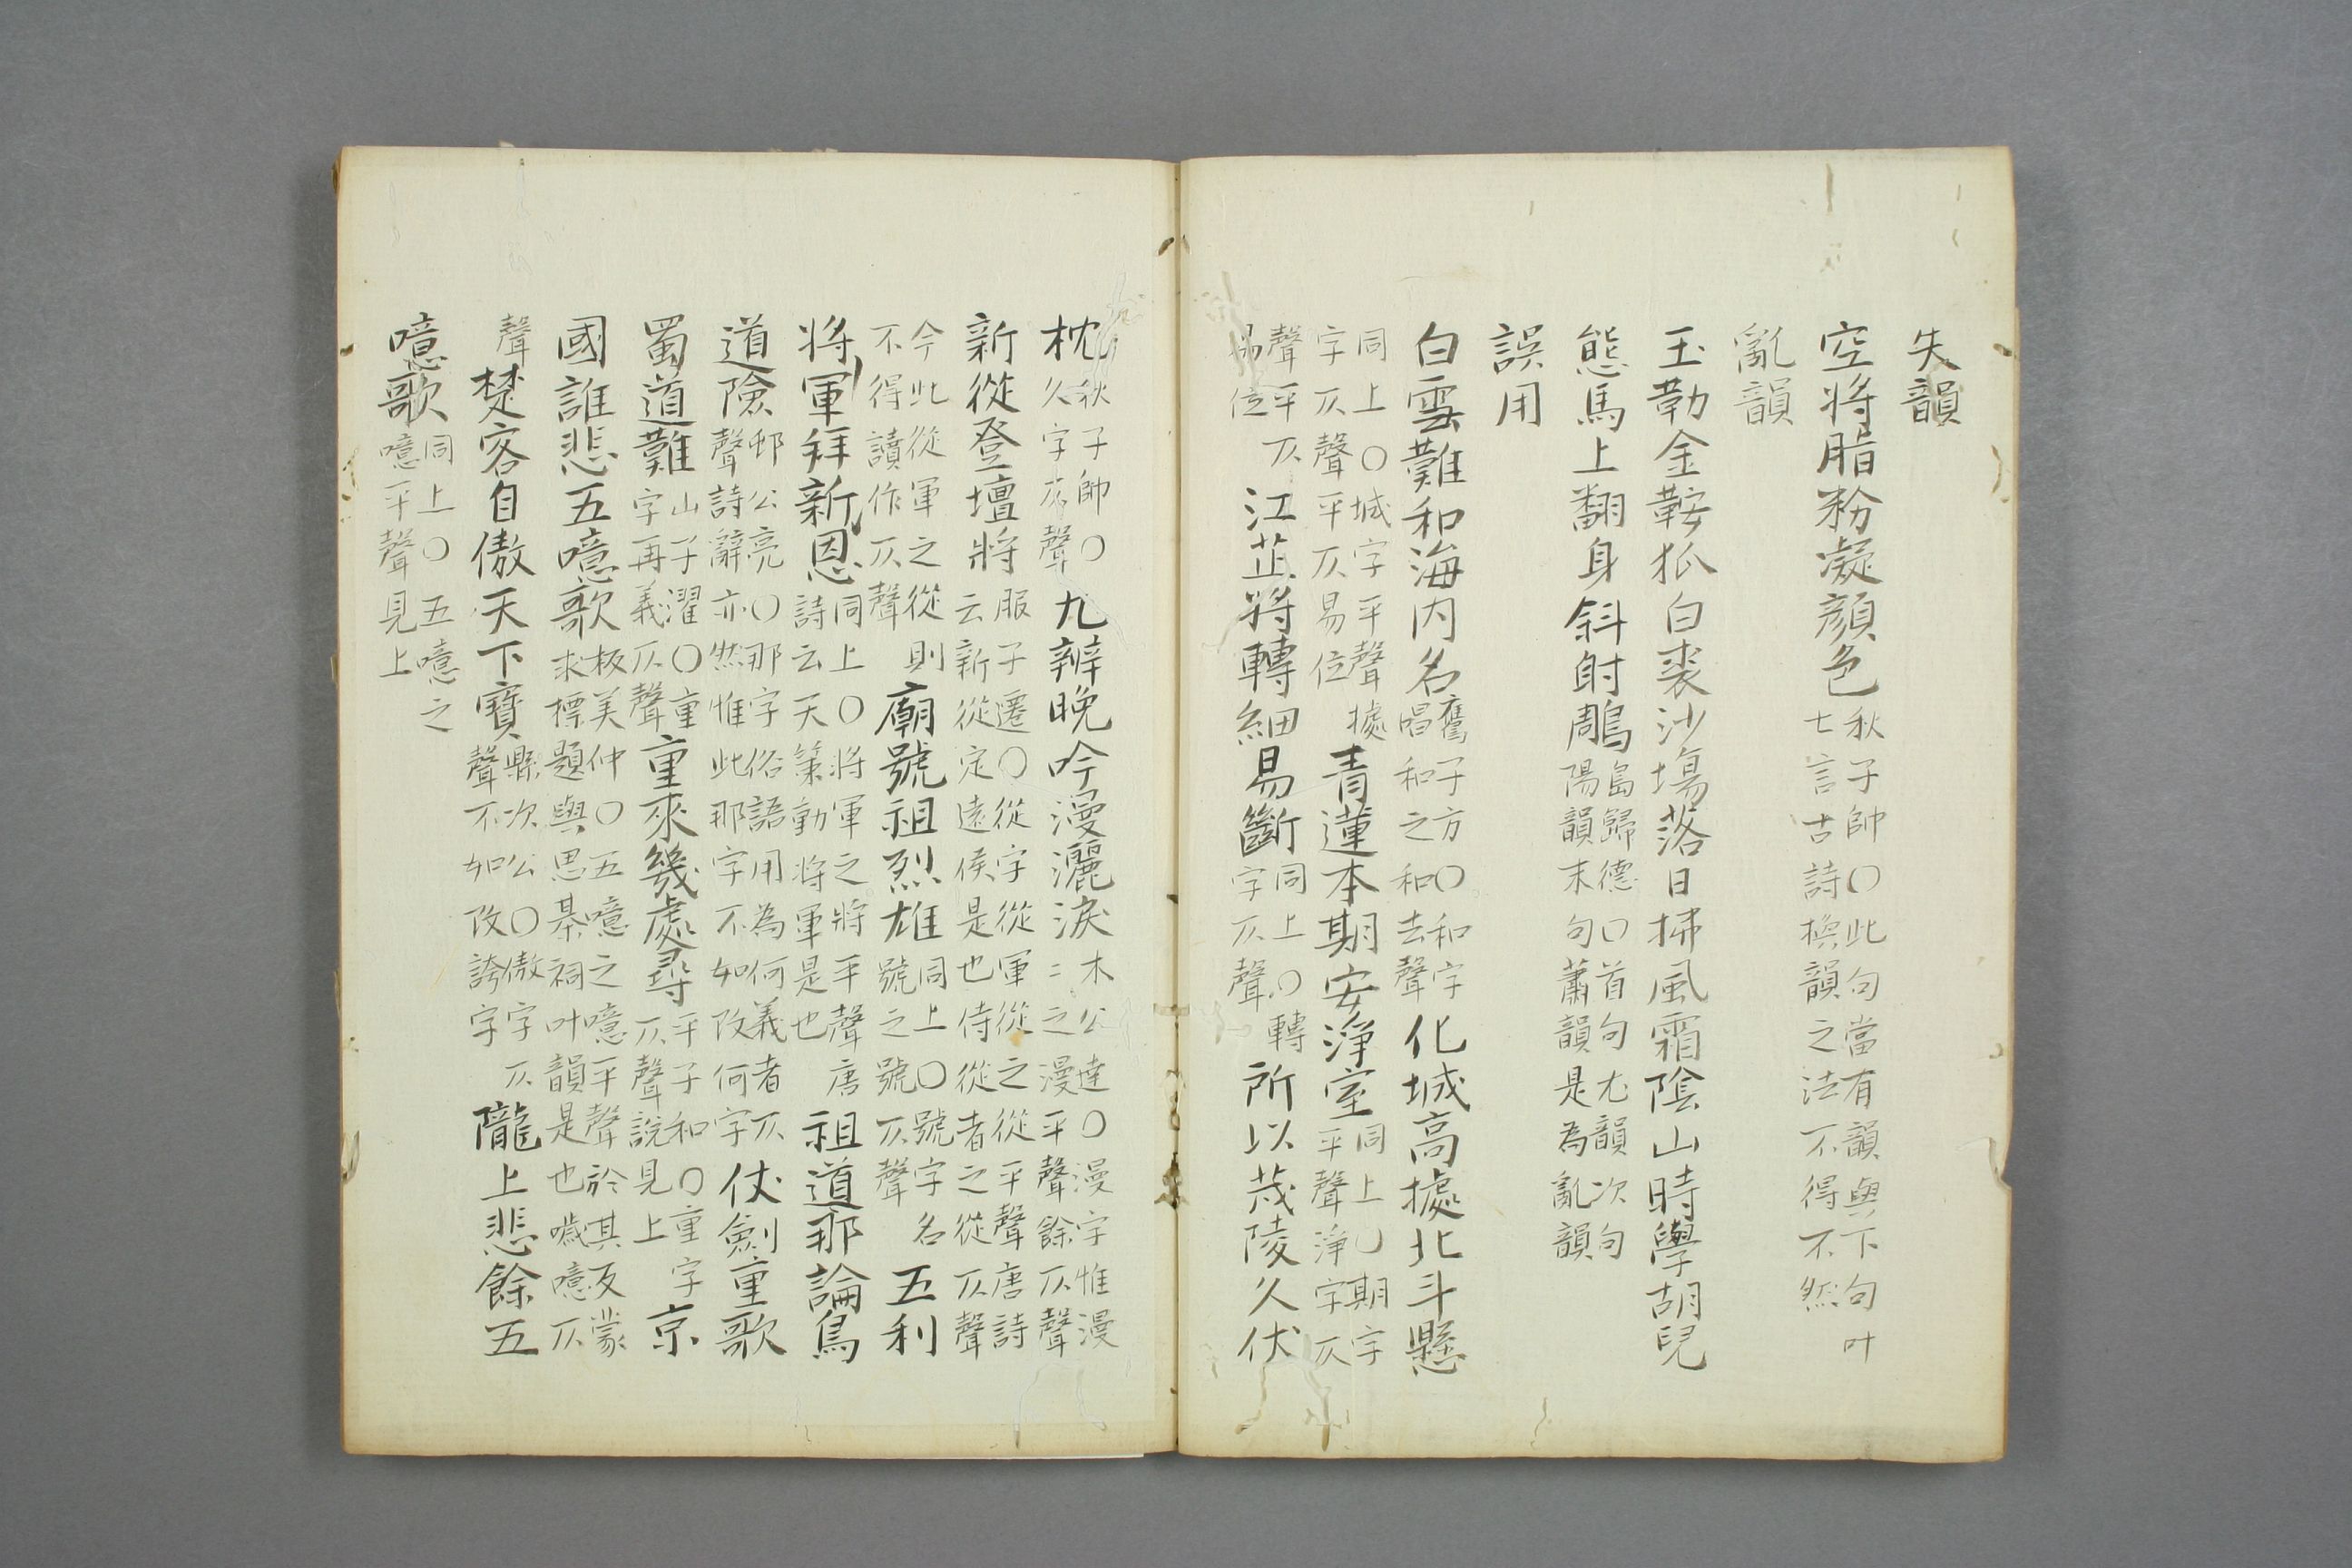 失韻
空將脂粉凝顔色秋子帥〇此句當有韻與下句叶七言古詩換韻之法不得不然
亂韻
玉勒金鞍狐白裘沙塲落日掃風霜陰山時學胡兒
態馬上翻身斜射鵰島歸德〇首句尤韻次句陽韻末句蕭韻是為亂韻
誤用
白雲難和海内名舊子方〇和字唱和之和去聲化城高據北斗懸
同上〇城字平聲據字仄聲平仄易位青蓮本期安淨室同上〇期字平聲淨字仄
聲平仄易位江芷將轉細易斷同上〇轉字仄聲所以茂陵久伏
枕秋子帥〇久字仄聲九辨晚吟漫灑淚木公達〇漫字惟漫二之漫平聲餘仄聲
新從登壇將服子遷〇從字從軍從之從平聲唐詩云新從定遠侯是也侍從者之從仄聲
今此從軍之從則不得讀作仄聲廟號祖烈雄同上〇號字名號之號仄聲五利
將軍拜新恩同上〇將軍之將平聲唐詩云天策動將軍是也祖道那論鳥
道險邨公亮〇那字俗語用為何義者仄聲詩辭亦然惟此那字不如改何字仗劍重歌
蜀道難山子濯〇重字再義仄聲重來幾處尋平子和〇重字仄聲說見上京
國誰悲五噫歌板美仲〇五噫之噫平聲於其反蒙求標題與思綦祠叶韻是也噦噫仄
聲楚客自傲天下寶縣次公〇傲字仄聲不如改誇字隴上悲餘五
噫歌同上〇五噫之噫平聲見上